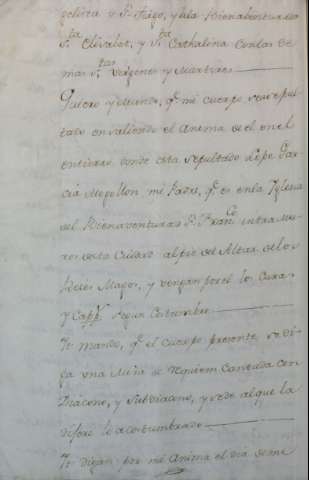 y Sn. Diego, y a la Bienabenturada
Sta. Olivalos, y Sta. Cathalina con las de
mas Stas. Vergenes y Martires
Quiero y mando, q.e mi cuerpo sea sepul
tado en saliendo el Anima de el en el
entierro donde esta sepultado Lope Gar
cia Mogollon mi Padre, q.e es en la Iglesia
del Bienaventurado S. Franco. intra mu
ros de esta Ciudad al pie del Altar de los
Reies Magos, y vengan por el los Curas
y Capps. segun Costumbre
Yt. mando, q.e el cuerpo presente se di
ga una Misa de Requiem Cantada con
Diacono, y Subdiacono, y se de al que la
dijere lo acostumbrado
Yt. digan por mi Anima el dia de mi